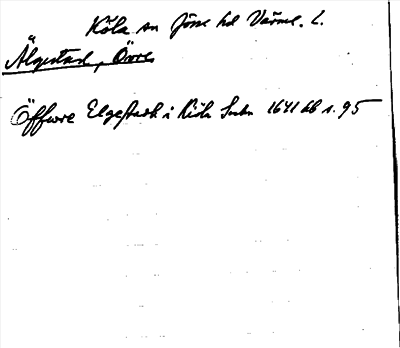 Köla sn Jösse hd Värml. l.
Älgestad, Övre
Öffwre Elgestadh i Kiöla Sochn 1641 db s. 95